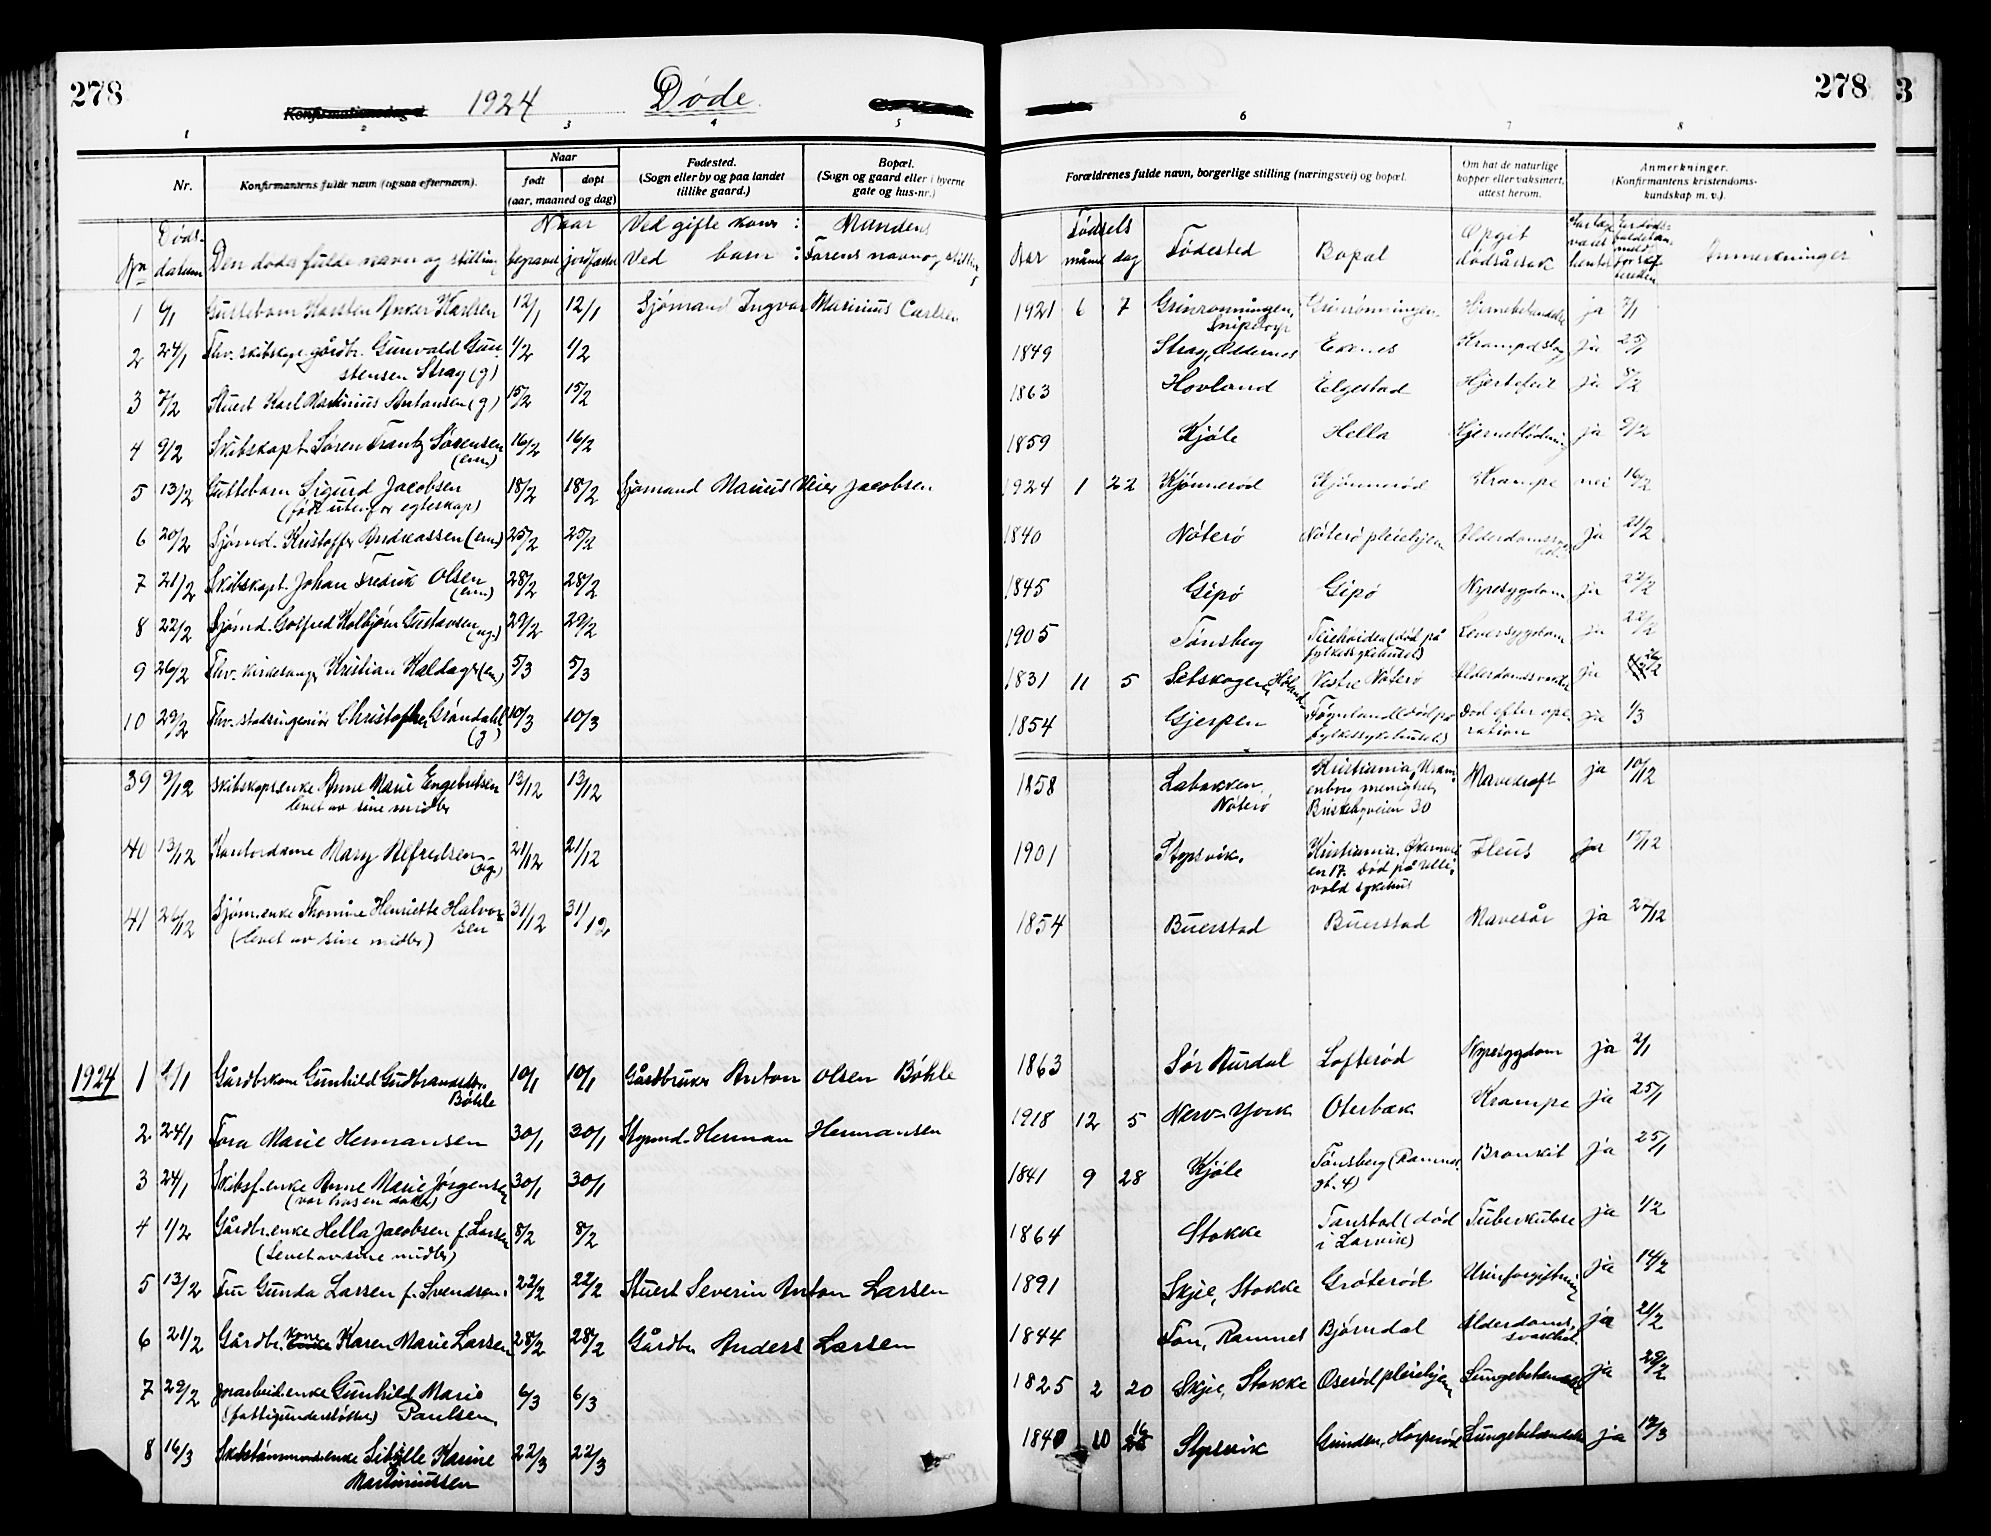 278 Konfirmationsdag d. 1924 Døde. 278 3
1 2 3 4 5 6 7 8
Nr. Konfirmantens fulde navn (og saa efternavn). Naar født døpt (aar, maaned og dag) Fødested. (Sogn eller by og paa landet tillike gaard.) Bopæl. (Sogn og gaard eller i byerne gate og hus-nr.) Forældrenes fulde navn, borgerlige stilling (næringsvei) og bopæl. Om hat de naturlige kopper eller vaksinert, attest herom. Anmerkninger. (Konfirmantens kristendoms-kundskap m. v.).
Nr. Døds-datum Den dødes fulde navn og stilling Naar begravet jordfæstet Ved gifte koner: Mandens Ved barn: Farens navn og stilling Aar Fødsels måned dag Fødested Bopæl Opgit dødsårsak Anmerkninger
1 6/1 Guttebarn Karsten Anker Karlsen 12/1 12/1 Sjømand Ingvar Marinius Carlsen 1921 6 7 Grinrønningen, Snipetorp Grinrønningen Hjernebetændelse ja 7/1
2 24/1 Fhv. skibskapt. gårdbr. Gunvald Gunstensen Stray (g) 1/2 1/2 1849 Stray, Oddernes Ekenes Krampeslag ja 25/1
3 7/2 Stuert Karl Martinius Antonsen (g) 15/2 15/2 1863 Hovland Elgestad Hjertefeil ja 8/2
4 9/2 Skibskapt. Søren Frantz Sørensen (enm) 16/2 16/2 1859 Kjøle Hella Hjerneblødning ja 9/2
5 13/2 Guttebarn Sigurd Jacobsen (født utenfor egteskap) 18/2 18/2 Sjømand Marius Meier Jacobsen 1924 1 22 Kjønnerød Kjønnerød Krampe nei 16/2
6 20/2 Sjømd. Kristoffer Andreassen (enm) 25/2 25/2 1840 Nøterø Nøterø pleiehjem ja 21/2
7 21/2 Skibskapt. Johan Fredrik Olsen (enm) 28/2 28/2 1845 Gipø Gipø Nyresygdom ja 22/2
8 22/2 Sjømd. Golfred Kolbjørn Gustavsen (ug.) 29/2 29/2 1905 Tønsberg Teieheiden (død på fylkessykehuset) Leversygdom ja 22/2
9 26/2 Fhv. kirkesanger Kristian Kaldager (em) 5/3 5/3 1831 11 5 Setskogen, Høland Vestre Nøterø Alderdomssvakhet ja
10 29/2 Fhv. stadsingeniør Christopher Grøndahl (g) 10/3 10/3 1854 Gjerpen Føynland (død på fylkessykehuset) Død efter operation ja 1/3
39 9/12 Skibskapt.enke Anne Marie Engebretsen levet av sine midler 13/12 13/12 1858 Labakken, Nøterø Kristiania, Uranienborg menighet, Briskebyveien 30 Mavekræft ja 10/12
40 13/12 Kontordame Mary Alfredsen (ug.) 21/12 21/12 1901 Stypsvik, Kristiania, 17. død på Ullevold sykehus Ileus ja 15/12
41 26/12 Sjøm.enke Thomine Henriette Halvorsen (levet av sine midler) 31/12 31/12 1854 Buerstad Buerstad Mavesår ja 27/12
1924 1 2/1 Gårdbr.kone Gunhild Gudbrandsdtr. Bøhle 10/1 10/1 Gårdbruker Anton Olsen Bøhle 1863 Sør Aurdal Lofterød Nyresygdom ja 2/1
2 24/1 Tora Marie Hermansen 30/1 30/1 Styrmd. Herman Hermansen 1918 12 5 New-York Oterbæk Krampe ja 25/1
3 24/1 Skibsf.enke Anne Marie Jørgensen (var hos en datter) 30/1 30/1 1841 9 28 Kjøle Tønsberg (Ramnes gt. 4) Bronkit ja 25/1
4 1/2 Gårdbr.enke Hella Jacobsen f. Larsen (levet av sine midler) 8/2 8/2 1864 Stokke Tanstad (død i Larvik) Tuberkulose ja 1/2
5 13/2 Fru Gunda Larsen f. Svendsen. 22/2 22/2 Stuert Severin Anton Larsen 1891 Skjee, Stokke Grøterød Urinforgiftning ja 14/2
6 21/2 Gårdbr. kone Karen Marie Larsen 28/2 28/2 Gårdbr. Anders Larsen 1844 Fon, Ramnes Bjørndal Alderdomssvakhet ja 21/2
7 29/2 Jorarbeid.enke Gunhild Marie Paulsen (fattigunderstøttet) 6/3 6/3 1825 2 20 Skjee, Stokke Oserød pleiehjem Lungebetændelse ja 29/2
8 16/3 Skibstømmermandsenke Sibille Karine Martiniussen 22/3 22/3 1840 10 16 Stypsvik Grinden, Lungebetændelse ja